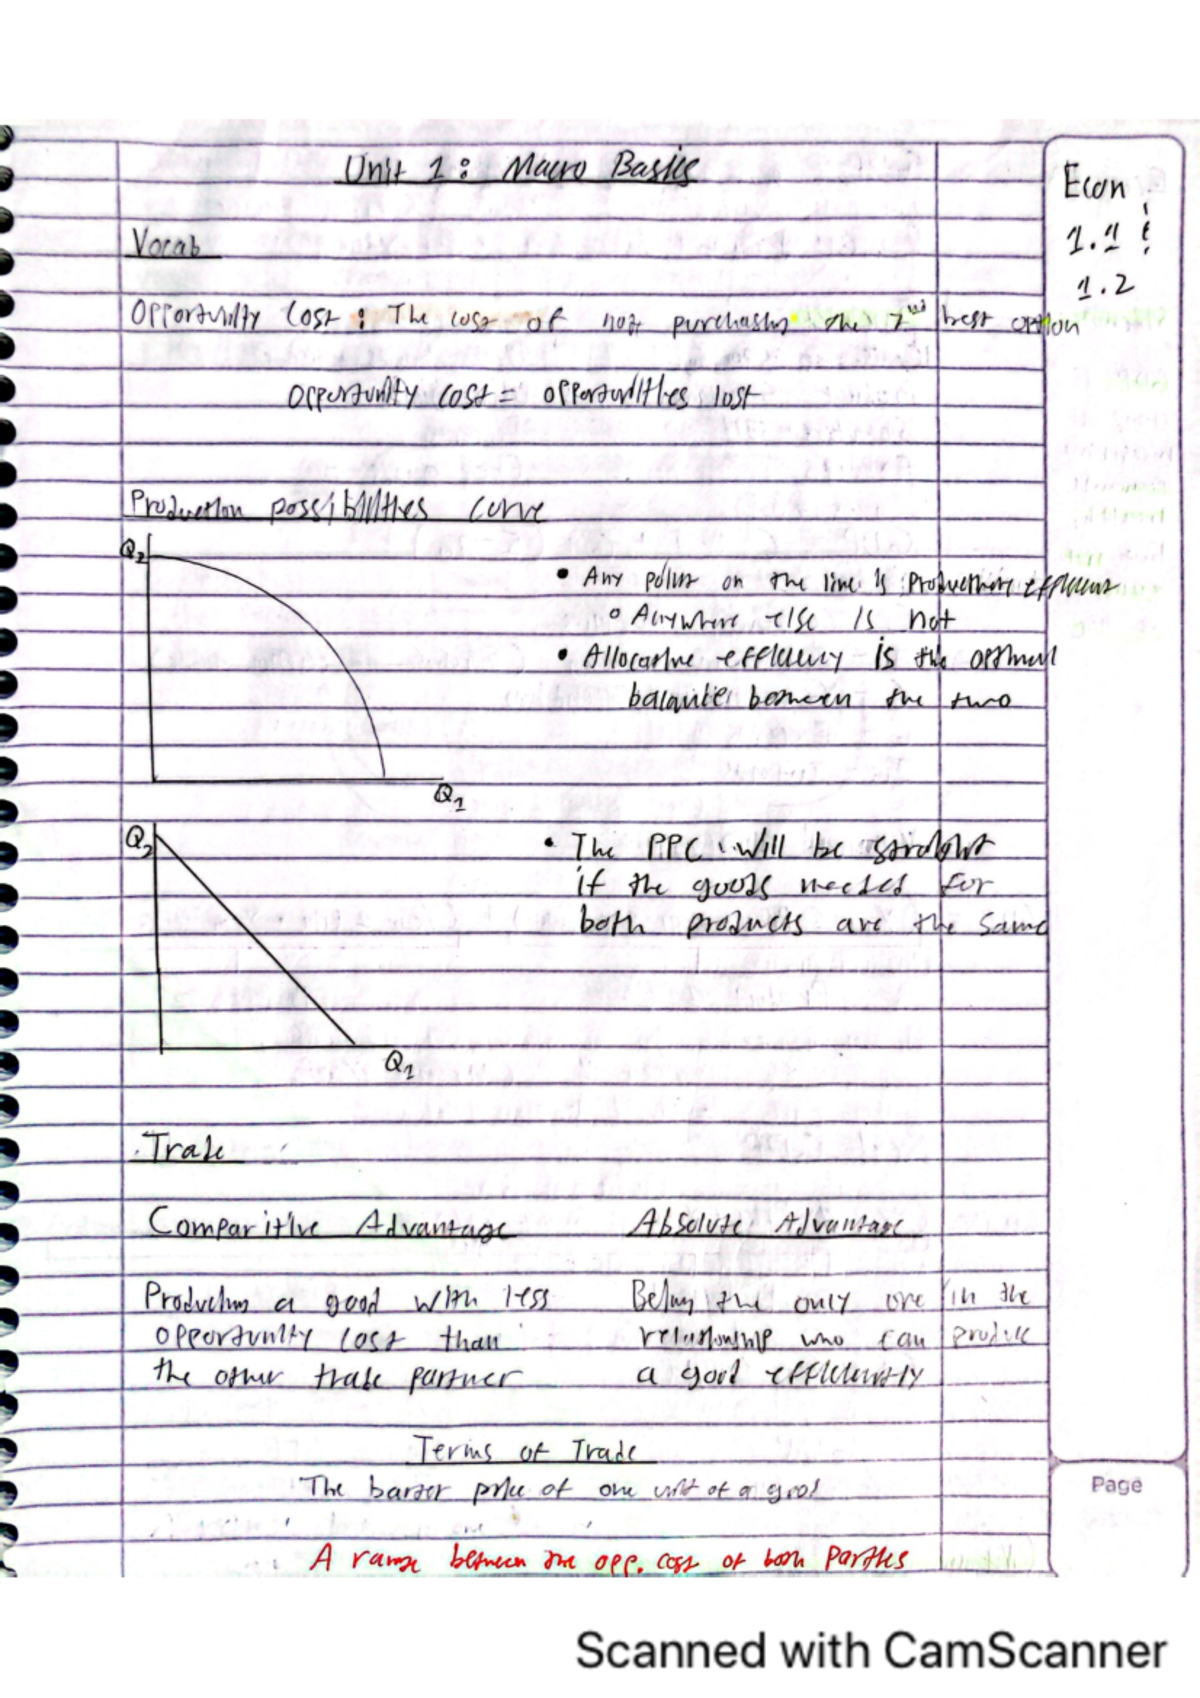 Unit 1: Macro Basics
Econ
1.1 &
1.2
Vocab
Opportunity Cost: The cost of not purchasing the 2nd best option
Opportunity cost = opportunities lost
Production possibilities curve
Q2
• Any point on the line is productive efficient
◦ Anywhere else is not
• Allocative efficiency is the optimal
between the two
Q1
Q2
• The PPC will be straight
if the goods needed for
both products are the same
Q1
Trade
Comparitive Advantage Absolute Advantage
Producing a good with less Being the only one in the
opportunity cost than relationship who can produce
the other trade partner a good efficiently
Terms of Trade
The barter price of one unit of a good
Page
A range between the opp. cost of both parties
Scanned with CamScanner